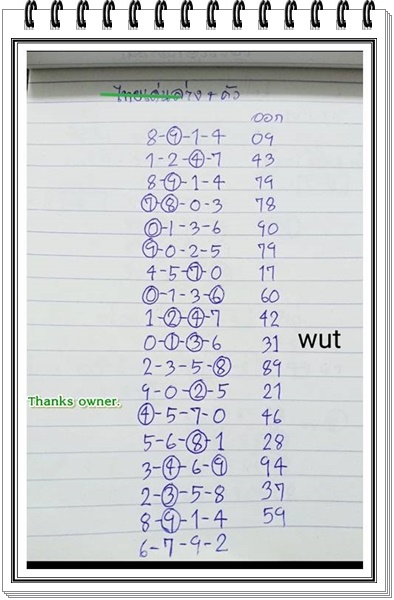 ไทยเด่นล่าง + ตัว
ออก
8-9-1-4 09
1-2-4-7 43
8-9-1-4 79
7-8-0-3 78
0-1-3-6 90
9-0-2-5 79
4-5-7-0 17
0-1-3-6 60
1-2-4-7 42
0-1-3-6 31 wut
2-3-5-8 89
9-0-2-5 21
Thanks owner.
4-5-7-0 46
5-6-8-1 28
3-4-6-9 94
2-3-5-8 37
8-9-1-4 59
6-7-9-2